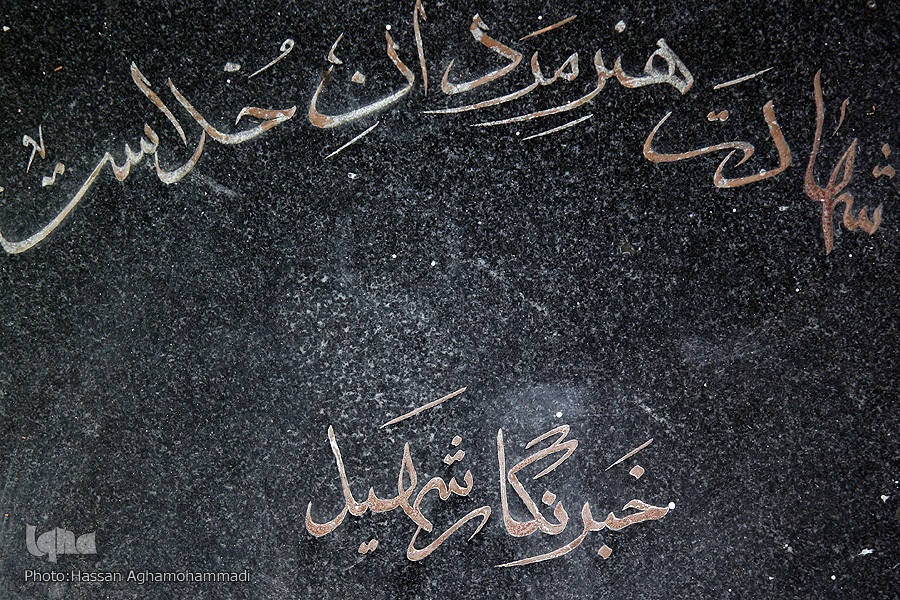 شهادت هنر مردانِ خُداست
خبرنگار شهید
iqna
Photo:Hassan Aghamohammadi